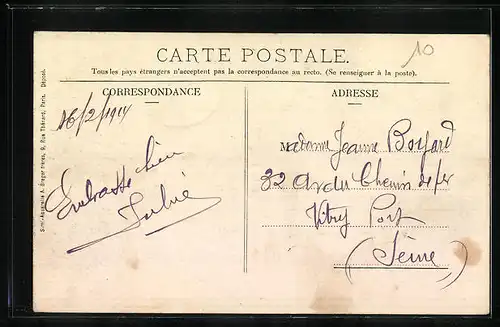 10
CARTE POSTALE.
Tous les pays étrangers n'acceptent pas la correspondance au recto. (Se renseigner à la poste).
CORRESPONDANCE
ADRESSE
16/2/1914
Embrasse bien
Madame Jeanne
32 Av du Chemin de fer
Vitry Port
(Seine)
A. Breger frères, 9, Rue Thénard, Paris. Déposé.